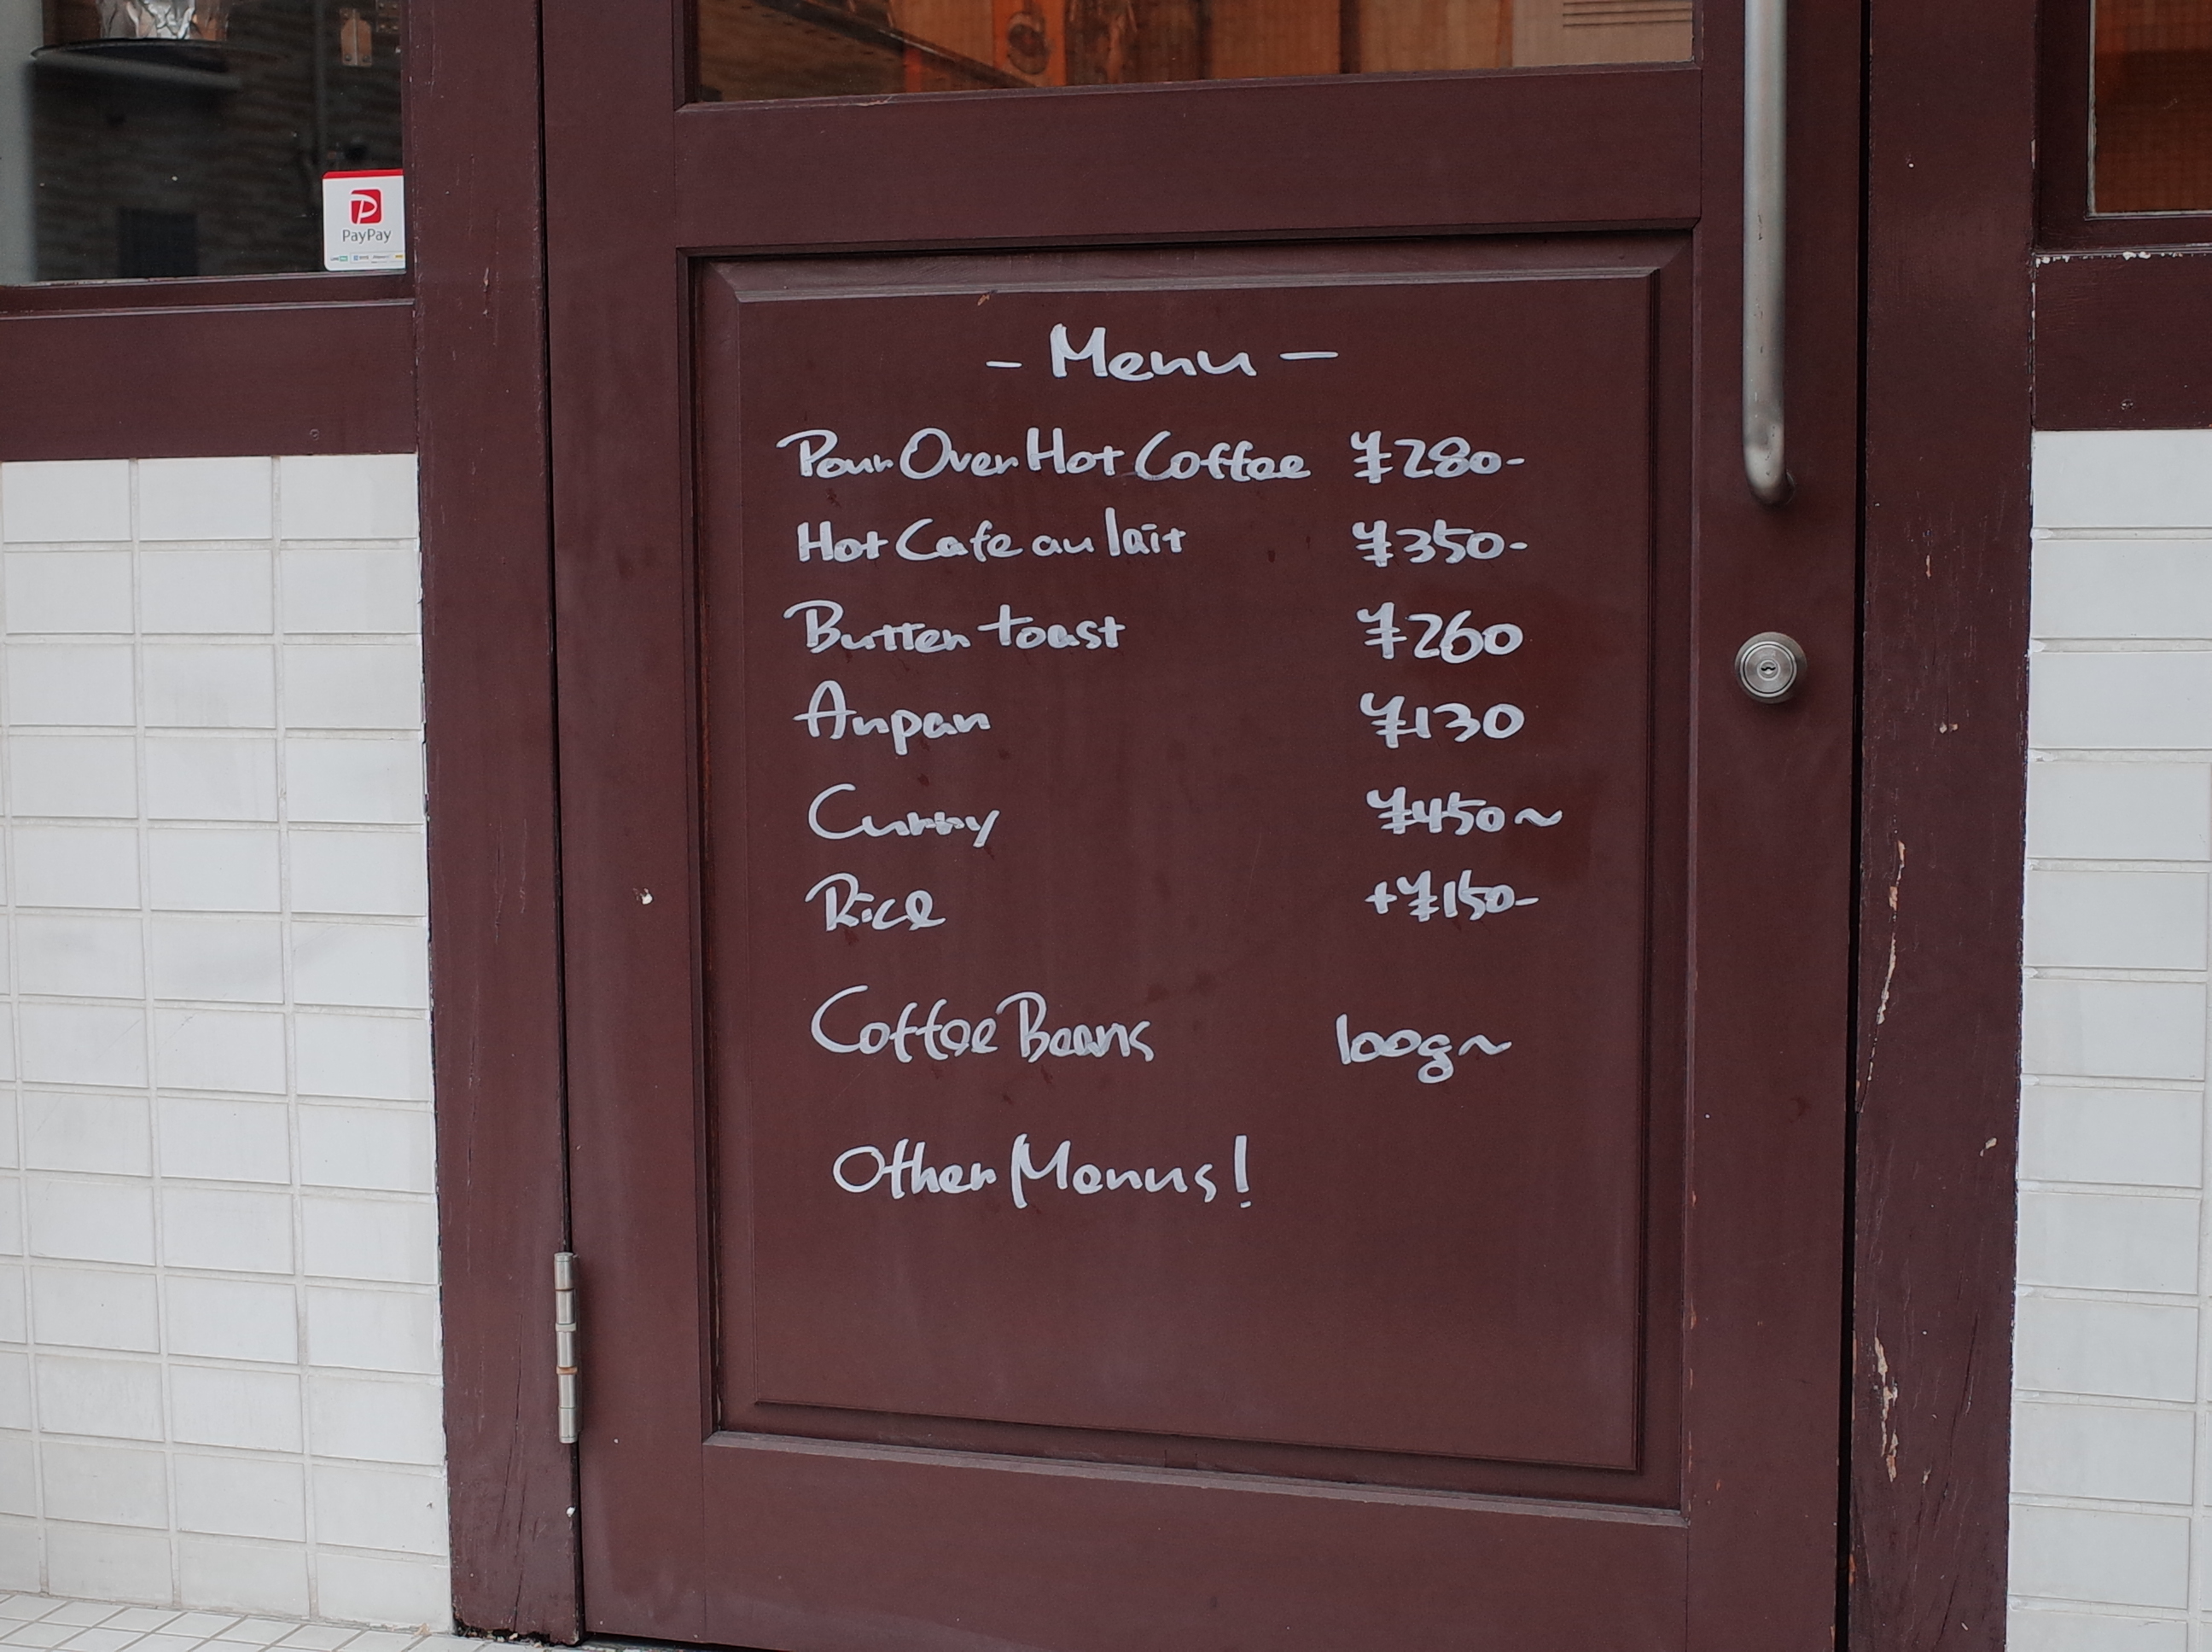 PayPay
- Menu -
Pour Over Hot Coffee ¥280-
Hot Cafe au lait ¥350-
Butter toast ¥260
Anpan ¥130
Curry ¥450~
Rice +¥150-
Coffee Beans 100g~
Other Menus!